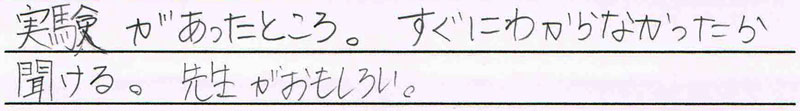 実験があったところ。すぐにわからなかったら
聞ける。先生がおもしろい。